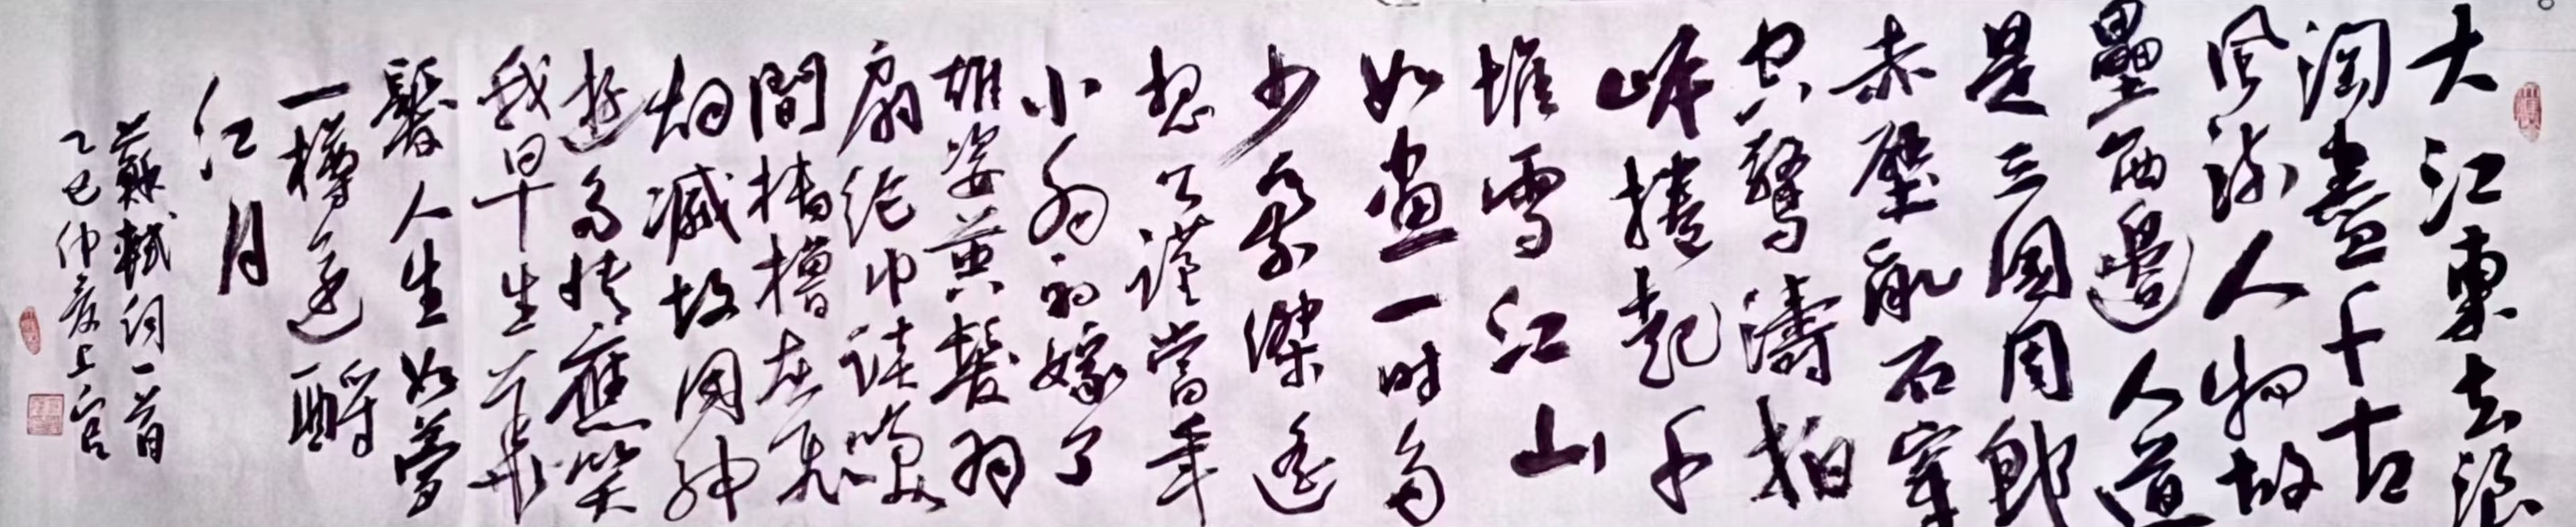 大江東去浪
淘盡千古
風流人物故
壘西邊人道
是三國周郎
赤壁亂石穿
空驚濤拍
岸捲起千
堆雪江山
如畫一時多
少豪傑遙
想公謹當年
小喬初嫁了
雄姿英發羽
扇綸巾談笑
間檣櫓灰飛
烟滅故國神
遊多情應笑
我早生華
髮人生如夢
一樽還酹
江月
蘇軾詞一首
乙巳仲夏上官